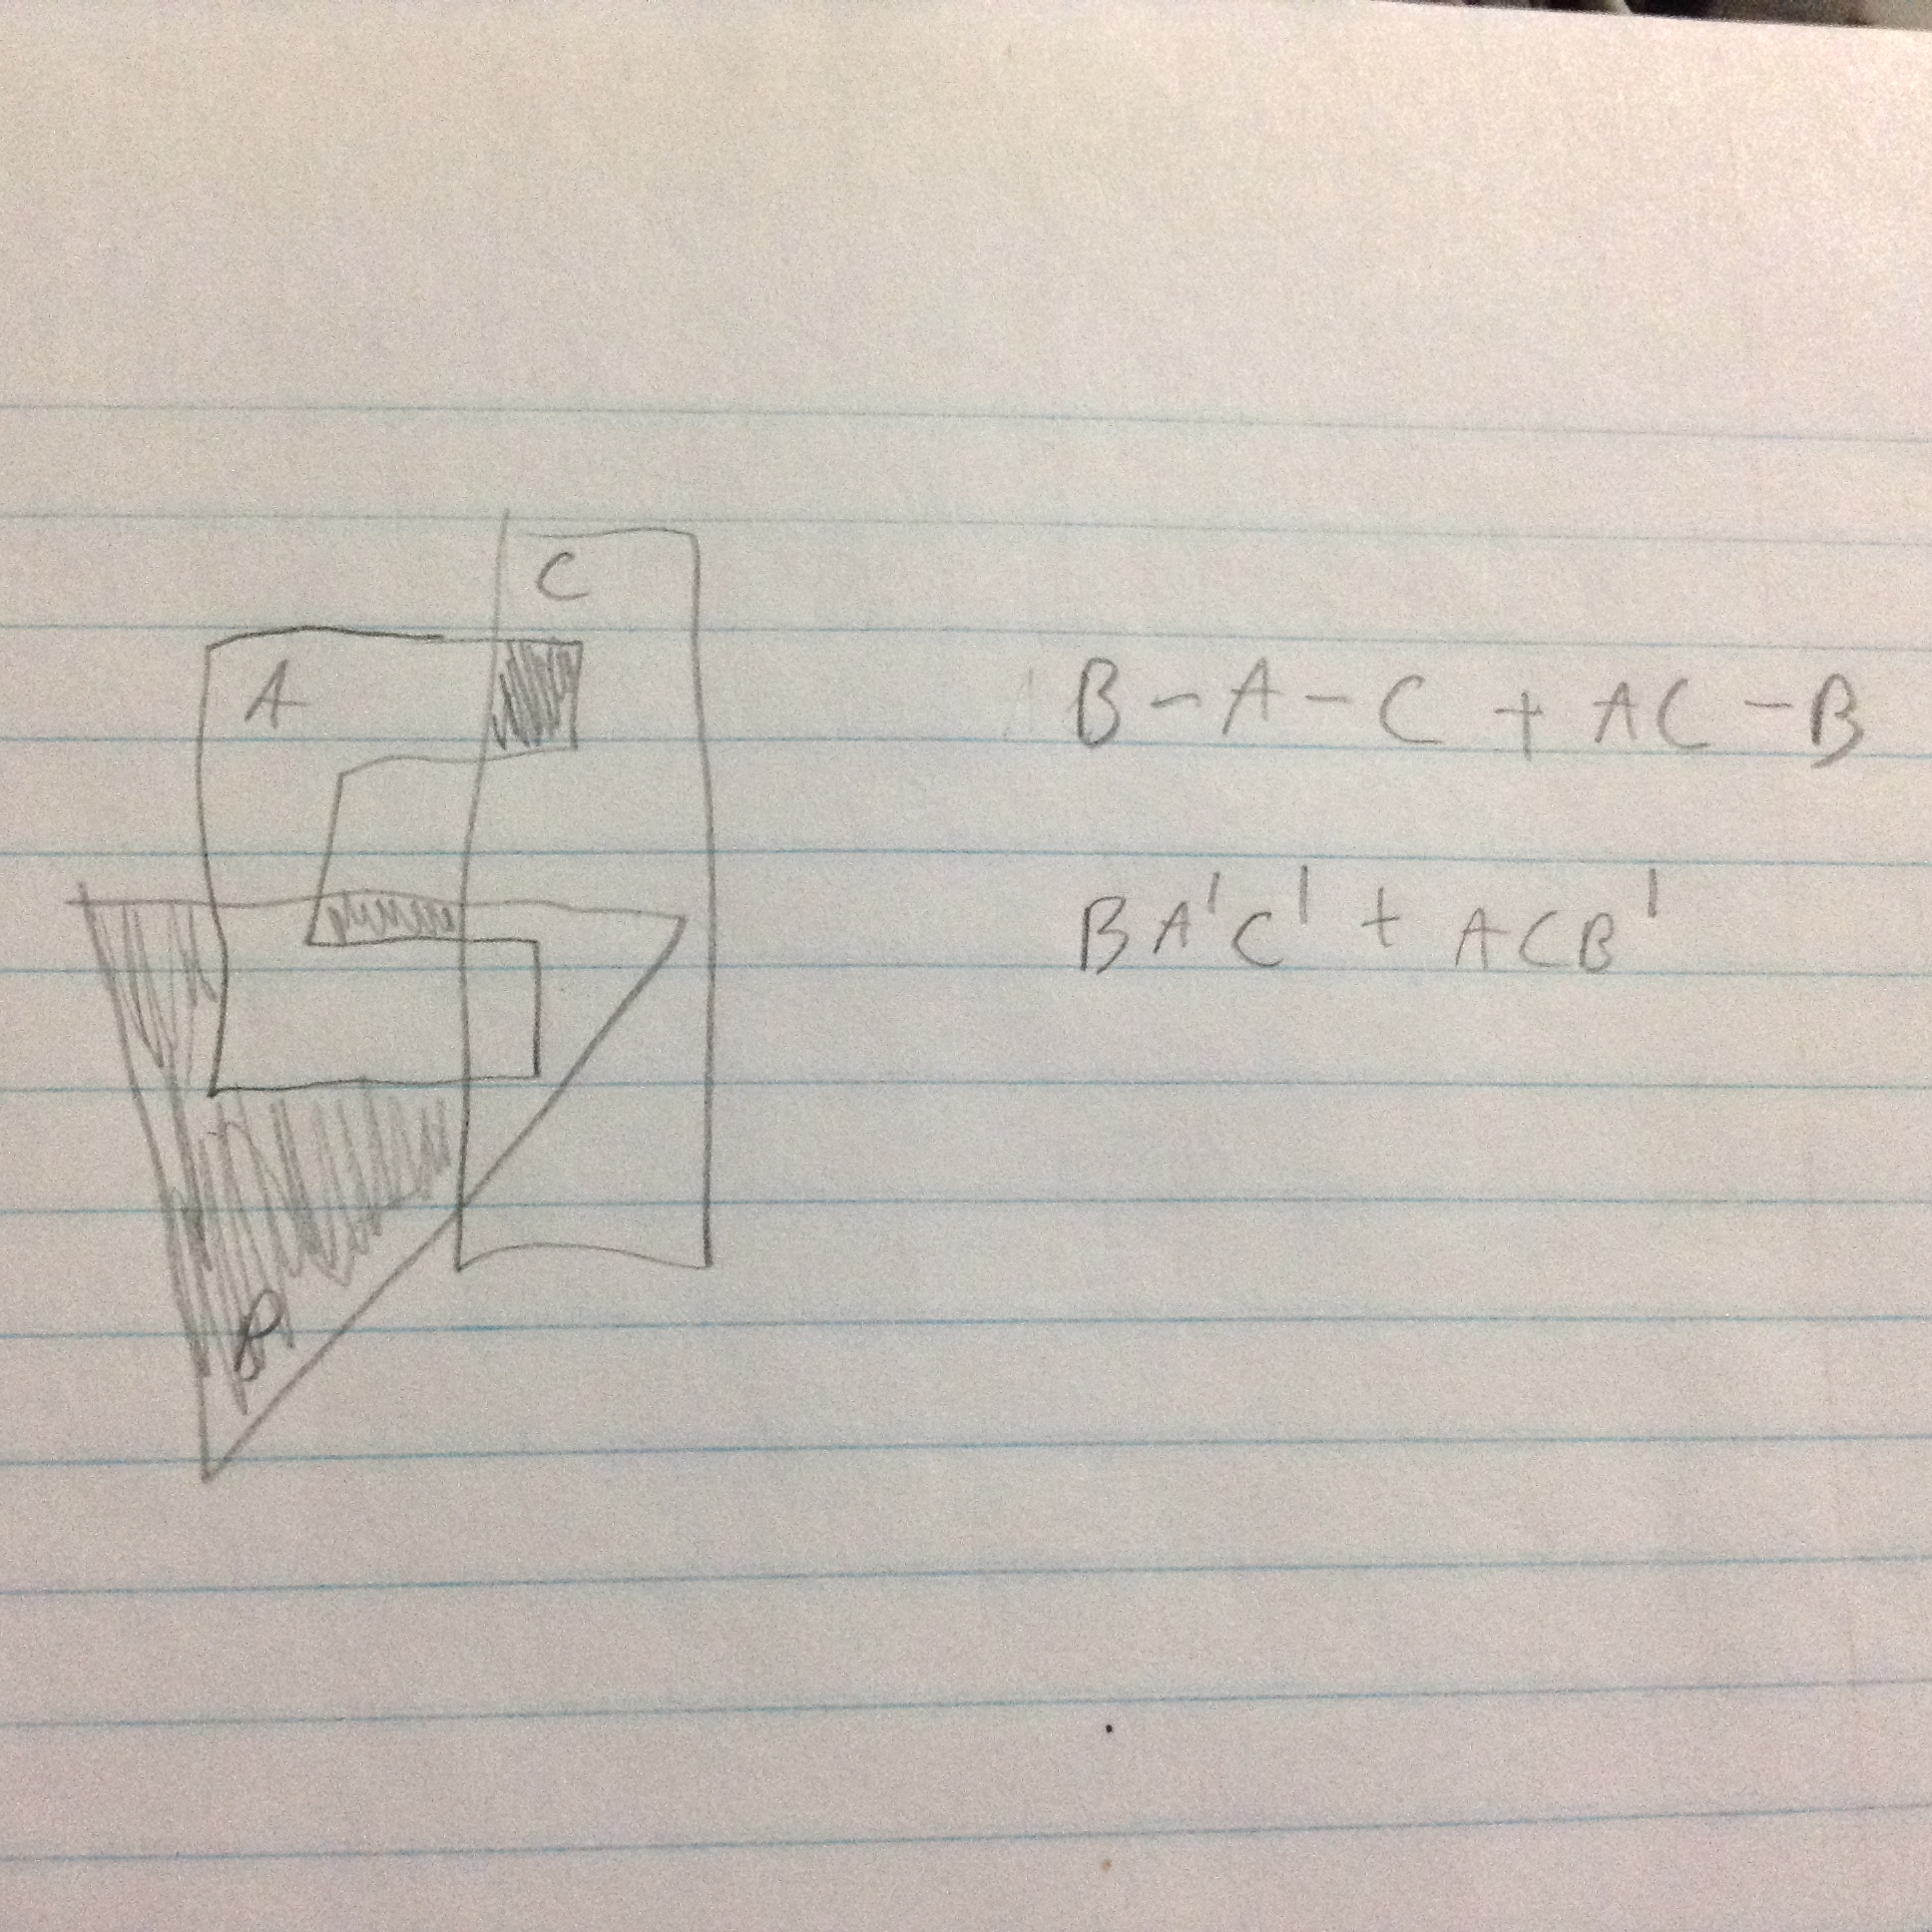 C
A
B - A - C + AC - B
BA'C' + ACB'
B